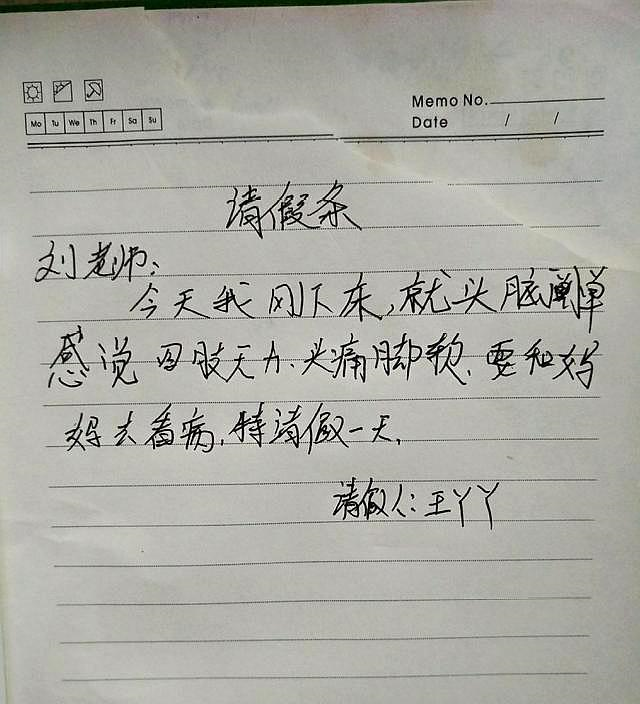 Memo No.
Mo Tu We Th Fr Sa Su
Date / /
请假条
刘老师:
今天我刚下床,就头脑
感说四肢无力、头痛脚软,要和妈
妈去看病,特请假一天,
请假人:王丫丫